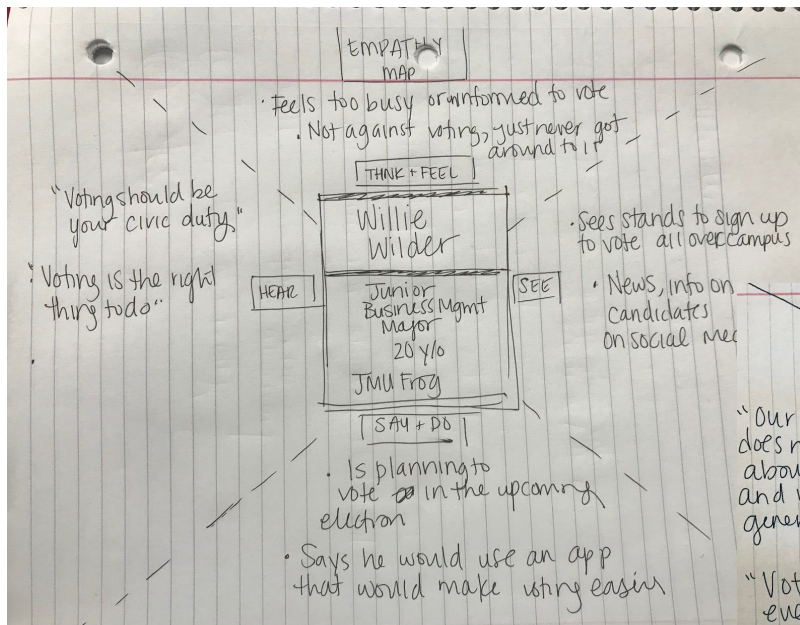 EMPATHY
MAP
· Feels too busy or uninformed to vote
· Not against voting, just never got
around to it
THINK + FEEL
"Voting should be
your civic duty"
"Voting is the right
thing to do"
HEAR
Willie
Wilder
Junior
Business Mgmt
Major
20 y/o
JMU Frog
SEE
· Sees stands to sign up
to vote all over campus
· News, info on
candidates
on social
SAY + DO
· Is planning to
vote in the upcoming
election
· Says he would use an app
that would make voting easier
"Our
does
and